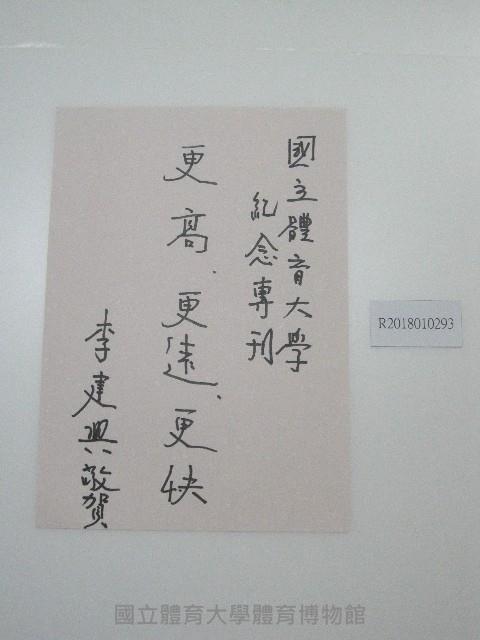 國立體育大學
紀念專刊
更高、更遠、更快
李建興敬賀
R2018010293
國立體育大學體育博物館